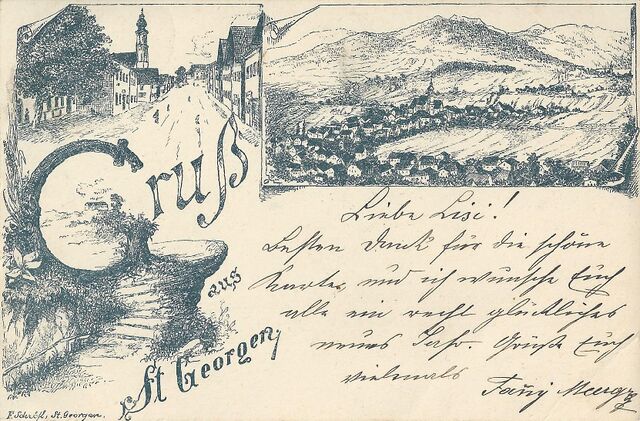 Gruß
aus
St Georgen
Liebe Lisi!
Besten Dank für die schöne
Karte, und ich wünsche Euch
alle ein recht glückliches
neues Jahr. Grüße Euch
vielmals
Fany
F. Schröfl, St. Georgen.